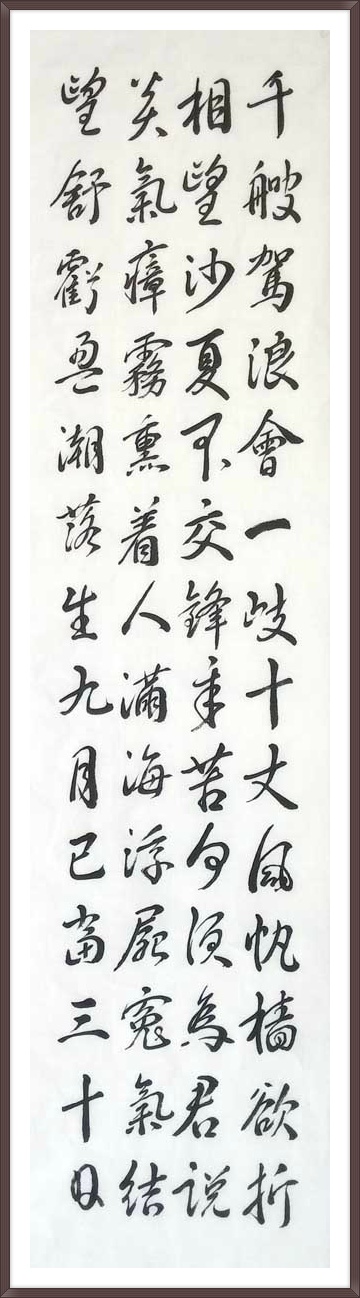 千艘駕浪會一歧十丈風帆檣欲折
相望沙夏不交鋒辛苦何須為君説
炎氣瘴霧熏着人滿海浮屍寃氣結
望舒虧盈潮落生九月已當三十日